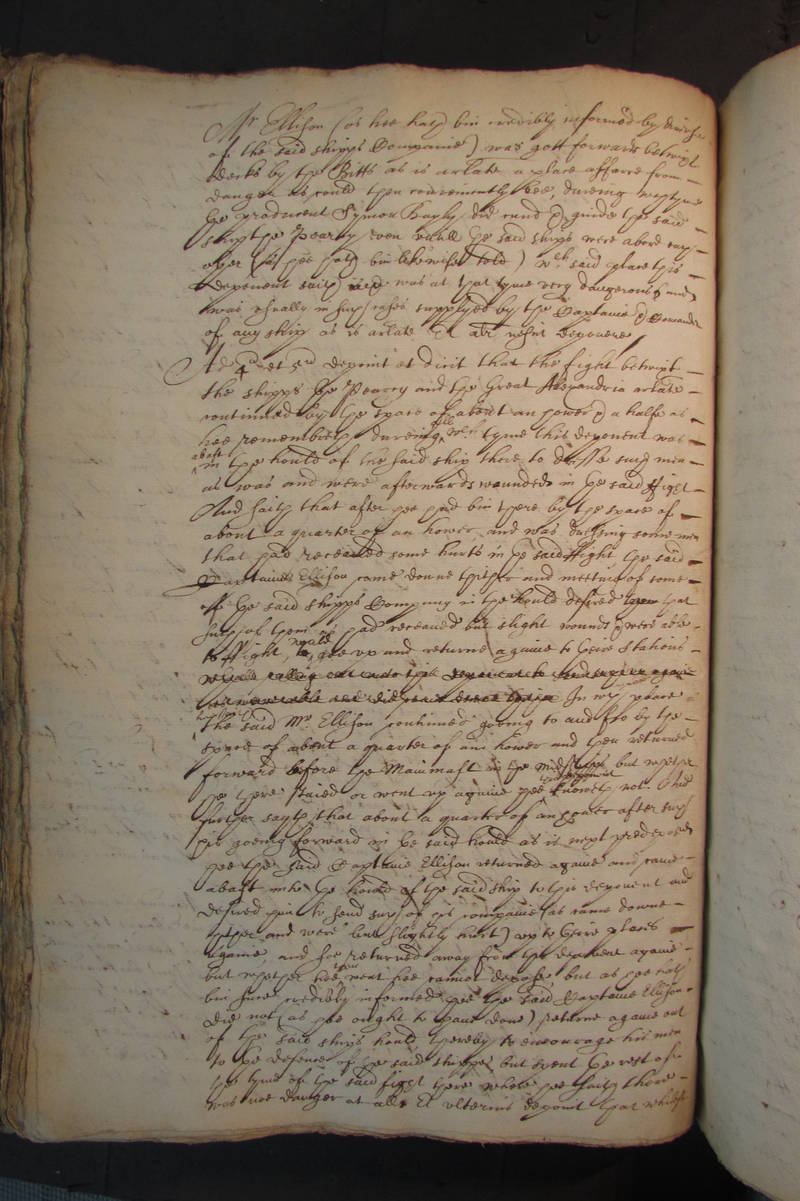 Mr Ellison (as hee hath bin credibly informed by divers
of the said shipps Companie) was gott forward betwixt
decks by the Bitts as is arlate a place as farre from
danger as could then conveniently bee, dureing which tyme
the producent Symon Bayly did cund & guide the said
shipp the Pearcy even untill the said shipps were abord each
other (as hee hath bin likewise told) wch said place this
deponent saith was at that tyme very dangerous and
was usually in such cases supplyed by the Captaine & Comander
of any ship as is arlate Et alr nescit deponere
Ad 4 et 5 deponit et dicit that the fight betwixt
the shipps the Pearcy and the Great Alexandria arlate
continued by the space of about an hower & a halfe as
hee remembreth dureing all wch tyme this deponent was
abaft
in the hould of the said ship there to dresse such men
as was and were afterwards wounded in the said Fight
And saith that after hee had bin there by the space of
about a quarter of an hower and was dressing some men
that had receaved some hurts in the said Fight the said
Captaine Ellison came downe thither and meeting of some
of the said shipps Company in the hould desired them that
such of them as had receaved but slight wounds & were able
to Fight, would goe up and returne againe to their stations
In wch place
the said Mr Ellison continued going to and fro by the
space of about a quarter of an hower and then returned
forward before the Mainmast in the midshipp but whether
he there staied or went up againe hee knoweth not. And
further sayth that about a quarter of an hower after such
his goeing forward in the said hould as is next predeposed
hee the said Captaine Ellison returned againe and came
abaft into the hould of the said ship to this deponent and
desired him to send such of his companie (as came downe
thither and were but slightly hurt) up to their places
againe, and soe returned away from this deponent againe
but whether hee then went hee cannot depose, but as hee hath
bin since credibly informed hee the said Captaine Ellison
did not (as hee ought to have done) returne againe out
of the said ships hould thereby to encourage his men
to the defence of the said shippe but spent the rest of
the tyme of the said fight there where hee saith there
was noe danger at all. Et ulterius deponit that whilst